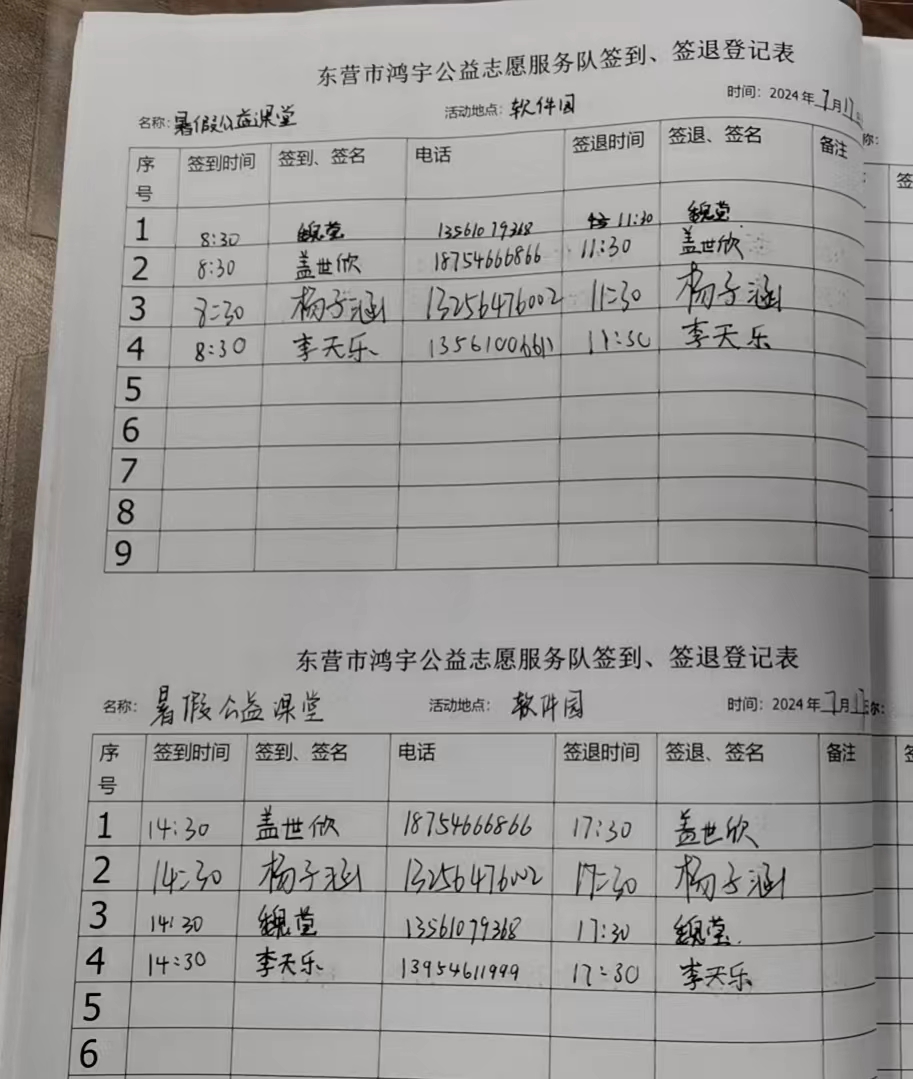 东营市鸿宇公益志愿服务队签到、签退登记表
名称：暑假公益课堂 活动地点：软件园 时间：2024年7月
序号 签到时间 签到、签名 电话 签退时间 签退、签名 备注
1 8:30 魏莹 13561079368 11:30 魏莹
2 8:30 盖世欣 18754666866 11:30 盖世欣
3 8:30 杨子涵 13256476002 11:30 杨子涵
4 8:30 李天乐 李天乐
5
6
7
8
9
东营市鸿宇公益志愿服务队签到、签退登记表
名称：暑假公益课堂 活动地点：软件园 时间：2024年7月
序号 签到时间 签到、签名 电话 签退时间 签退、签名 备注
1 14:30 盖世欣 18754666866 17:30 盖世欣
2 14:30 杨子涵 13256476002 17:30 杨子涵
3 14:30 魏莹 13561079368 17:30 魏莹
4 14:30 李天乐 13954611999 17:30 李天乐
5
6